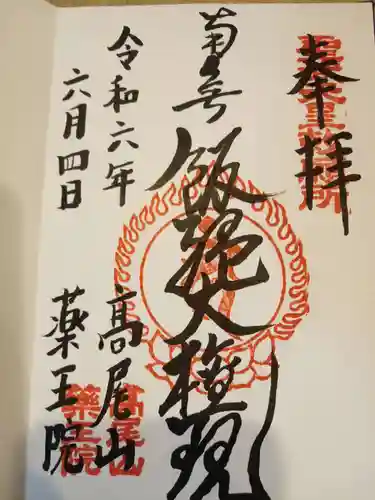 奉拝
南無
飯縄大権現
高尾山
薬王院
令和六年
六月四日
高尾山
薬王院